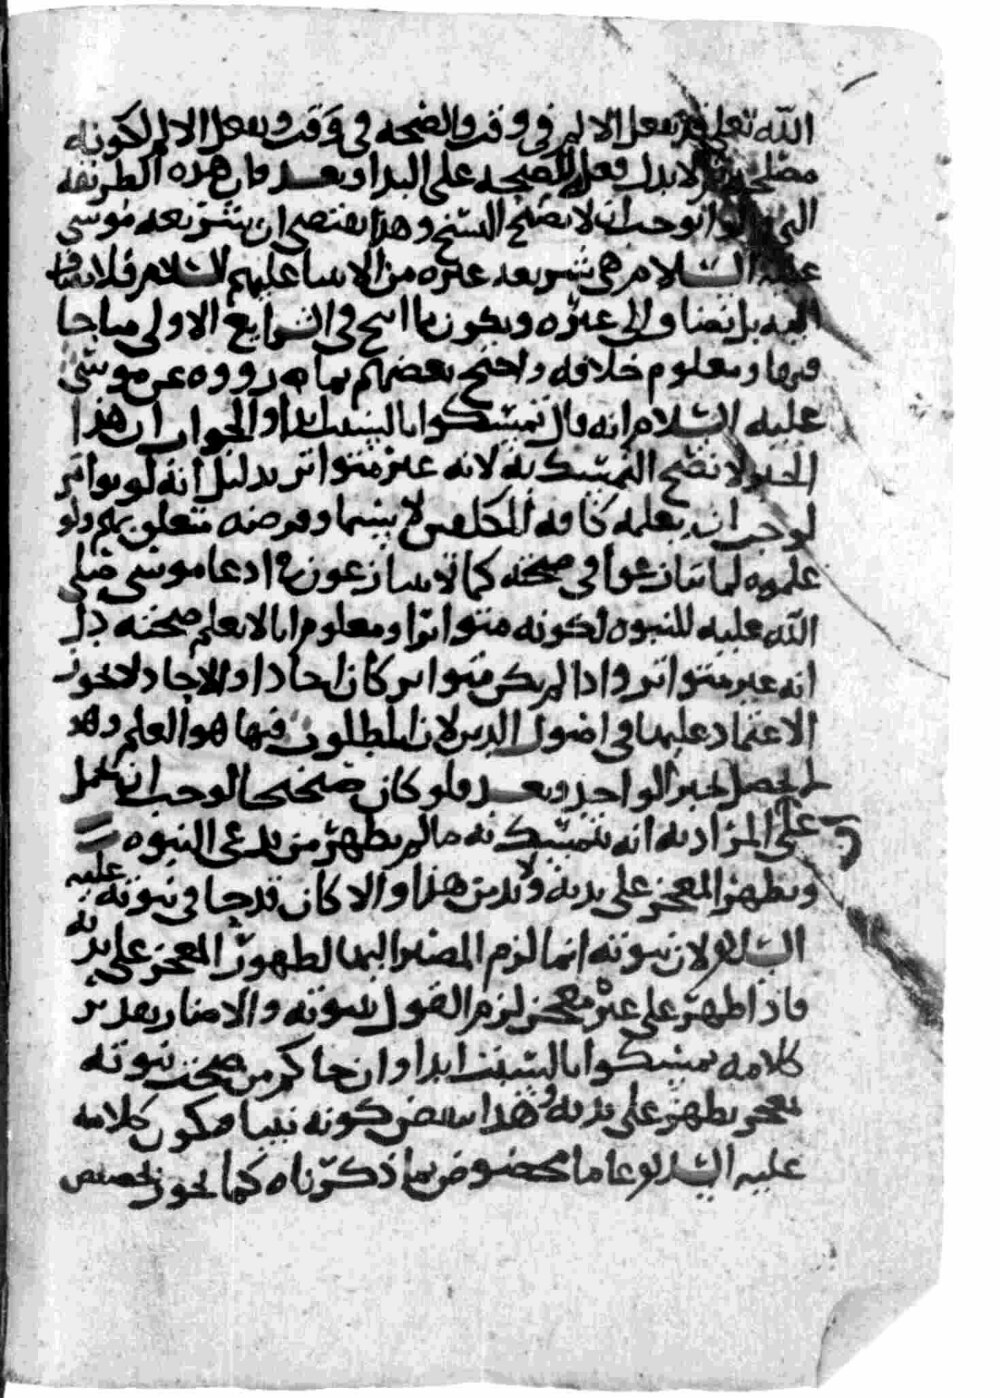 الله تعالى يفعل الالم في وقت والصحه في وقت ويفعل الالم لكونه
مصلحه ولا يدل فعله للصحه على البدا وبعد فان هذه الطريقه
التي قالوا توجب ان لا يصح النسخ وهذا يقتضي ان شريعه موسى
عليه السلام هي شريعه غيره من الانبيا عليهم السلام فلا يضاف
اليه بل يضاف الى غيره ويكون ما ابيح في الشرايع الاولى مباحا
فيها ومعلوم خلافه واحتج بعضهم بما رووه عن موسى
عليه السلام انه قال تمسكوا بالسبت ابدا والجواب ان هذا
الخبر لا يصح التمسك به لانه غير متواتر بدليل انه لو تواتر
لوجب ان يعلمه كافه المكلفين لا سيما وفرضه متعلق بهم ولو
علموه لما تنازعوا في صحته كما لا يتنازعون في ادعا موسى صلى
الله عليه للنبوه لكونه متواترا ومعلوم انا لا نعلم صحته دل
انه غير متواتر واذا لم يكن متواتر كان احادا والاحاد لا يجوز
الاعتماد عليها في اصول الدين لان المطلوب فيها هو العلم وهو
لا يحصل بخبر الواحد وبعد فلو كان صحيحا لوجب ان يحمل
على المراد به انه يتمسك به ما لم يظهر من يدعي النبوه
ويظهر المعجز على يديه ولا بد من هذا والا كان قدحا في نبوته عليه
السلام لان نبوته انما لزم المصير اليها لظهور المعجز على يديه
فاذا ظهر على غيره معجز لزم القول بنبوته والا صار تقدير
كلامه تمسكوا بالسبت ابدا وان جاكم من صحت نبوته
بمعجز يظهر على يديه وهذا ينقض كونه نبيا فيكون كلامه
عليه السلام عاما مخصوص بما ذكرناه كما يجوز تخصيص